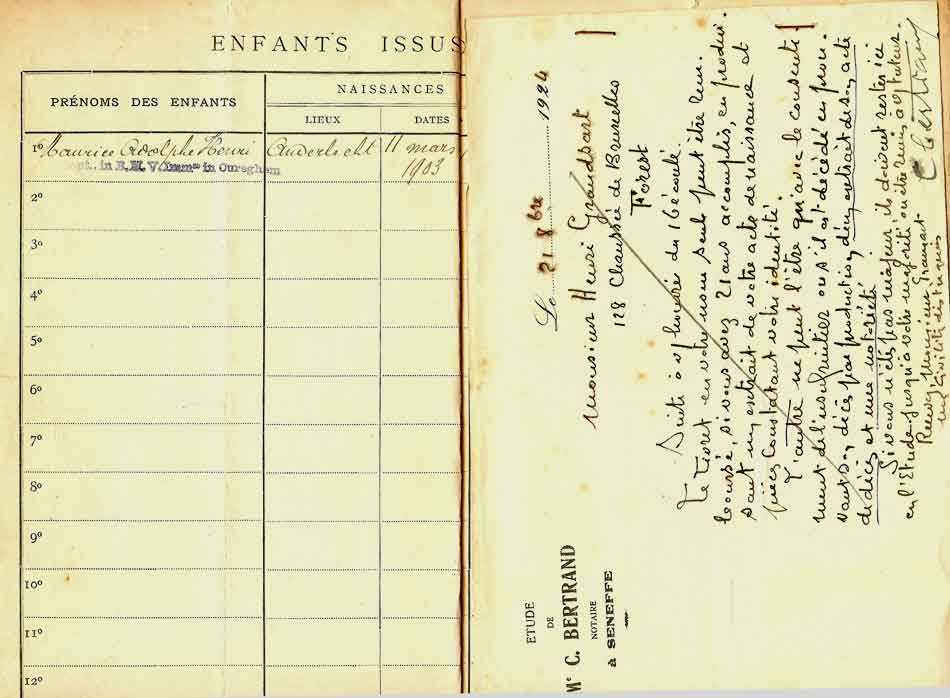 ENFANTS ISSUS
PRÉNOMS DES ENFANTS
NAISSANCES
LIEUX
DATES
1º Maurice Adolphe Henri Anderlecht 11 mars
1903
in Cureghem
2º
3º
4º
5º
6º
7º
8º
9º
10º
11º
12º
ETUDE
DE
Mᵉ C. BERTRAND
NOTAIRE
à SENEFFE
Le 21 8bre 1924
Monsieur Henri Grandsart
128 Chaussée de Bruxelles
Forest
Suite à v/ honorée du 16 écoulé.
Le livret en votre nom seul peut être rem-
boursé, si vous avez 21 ans accomplis, en produi-
sant un extrait de votre acte de naissance et
pièces constatant votre identité.
L'autre ne peut l'être qu'avec le consente-
ment de l'usufruitier ou s'il est décédé en prou-
vant son décès par production d'un extrait de son acte
de décès et une notoriété.
Si vous n'êtes pas majeur ils doivent rester ici
en l'Etude jusqu'à votre majorité ou
Recevez Monsieur Grandsart
mes civilités distinguées
C Bertrand